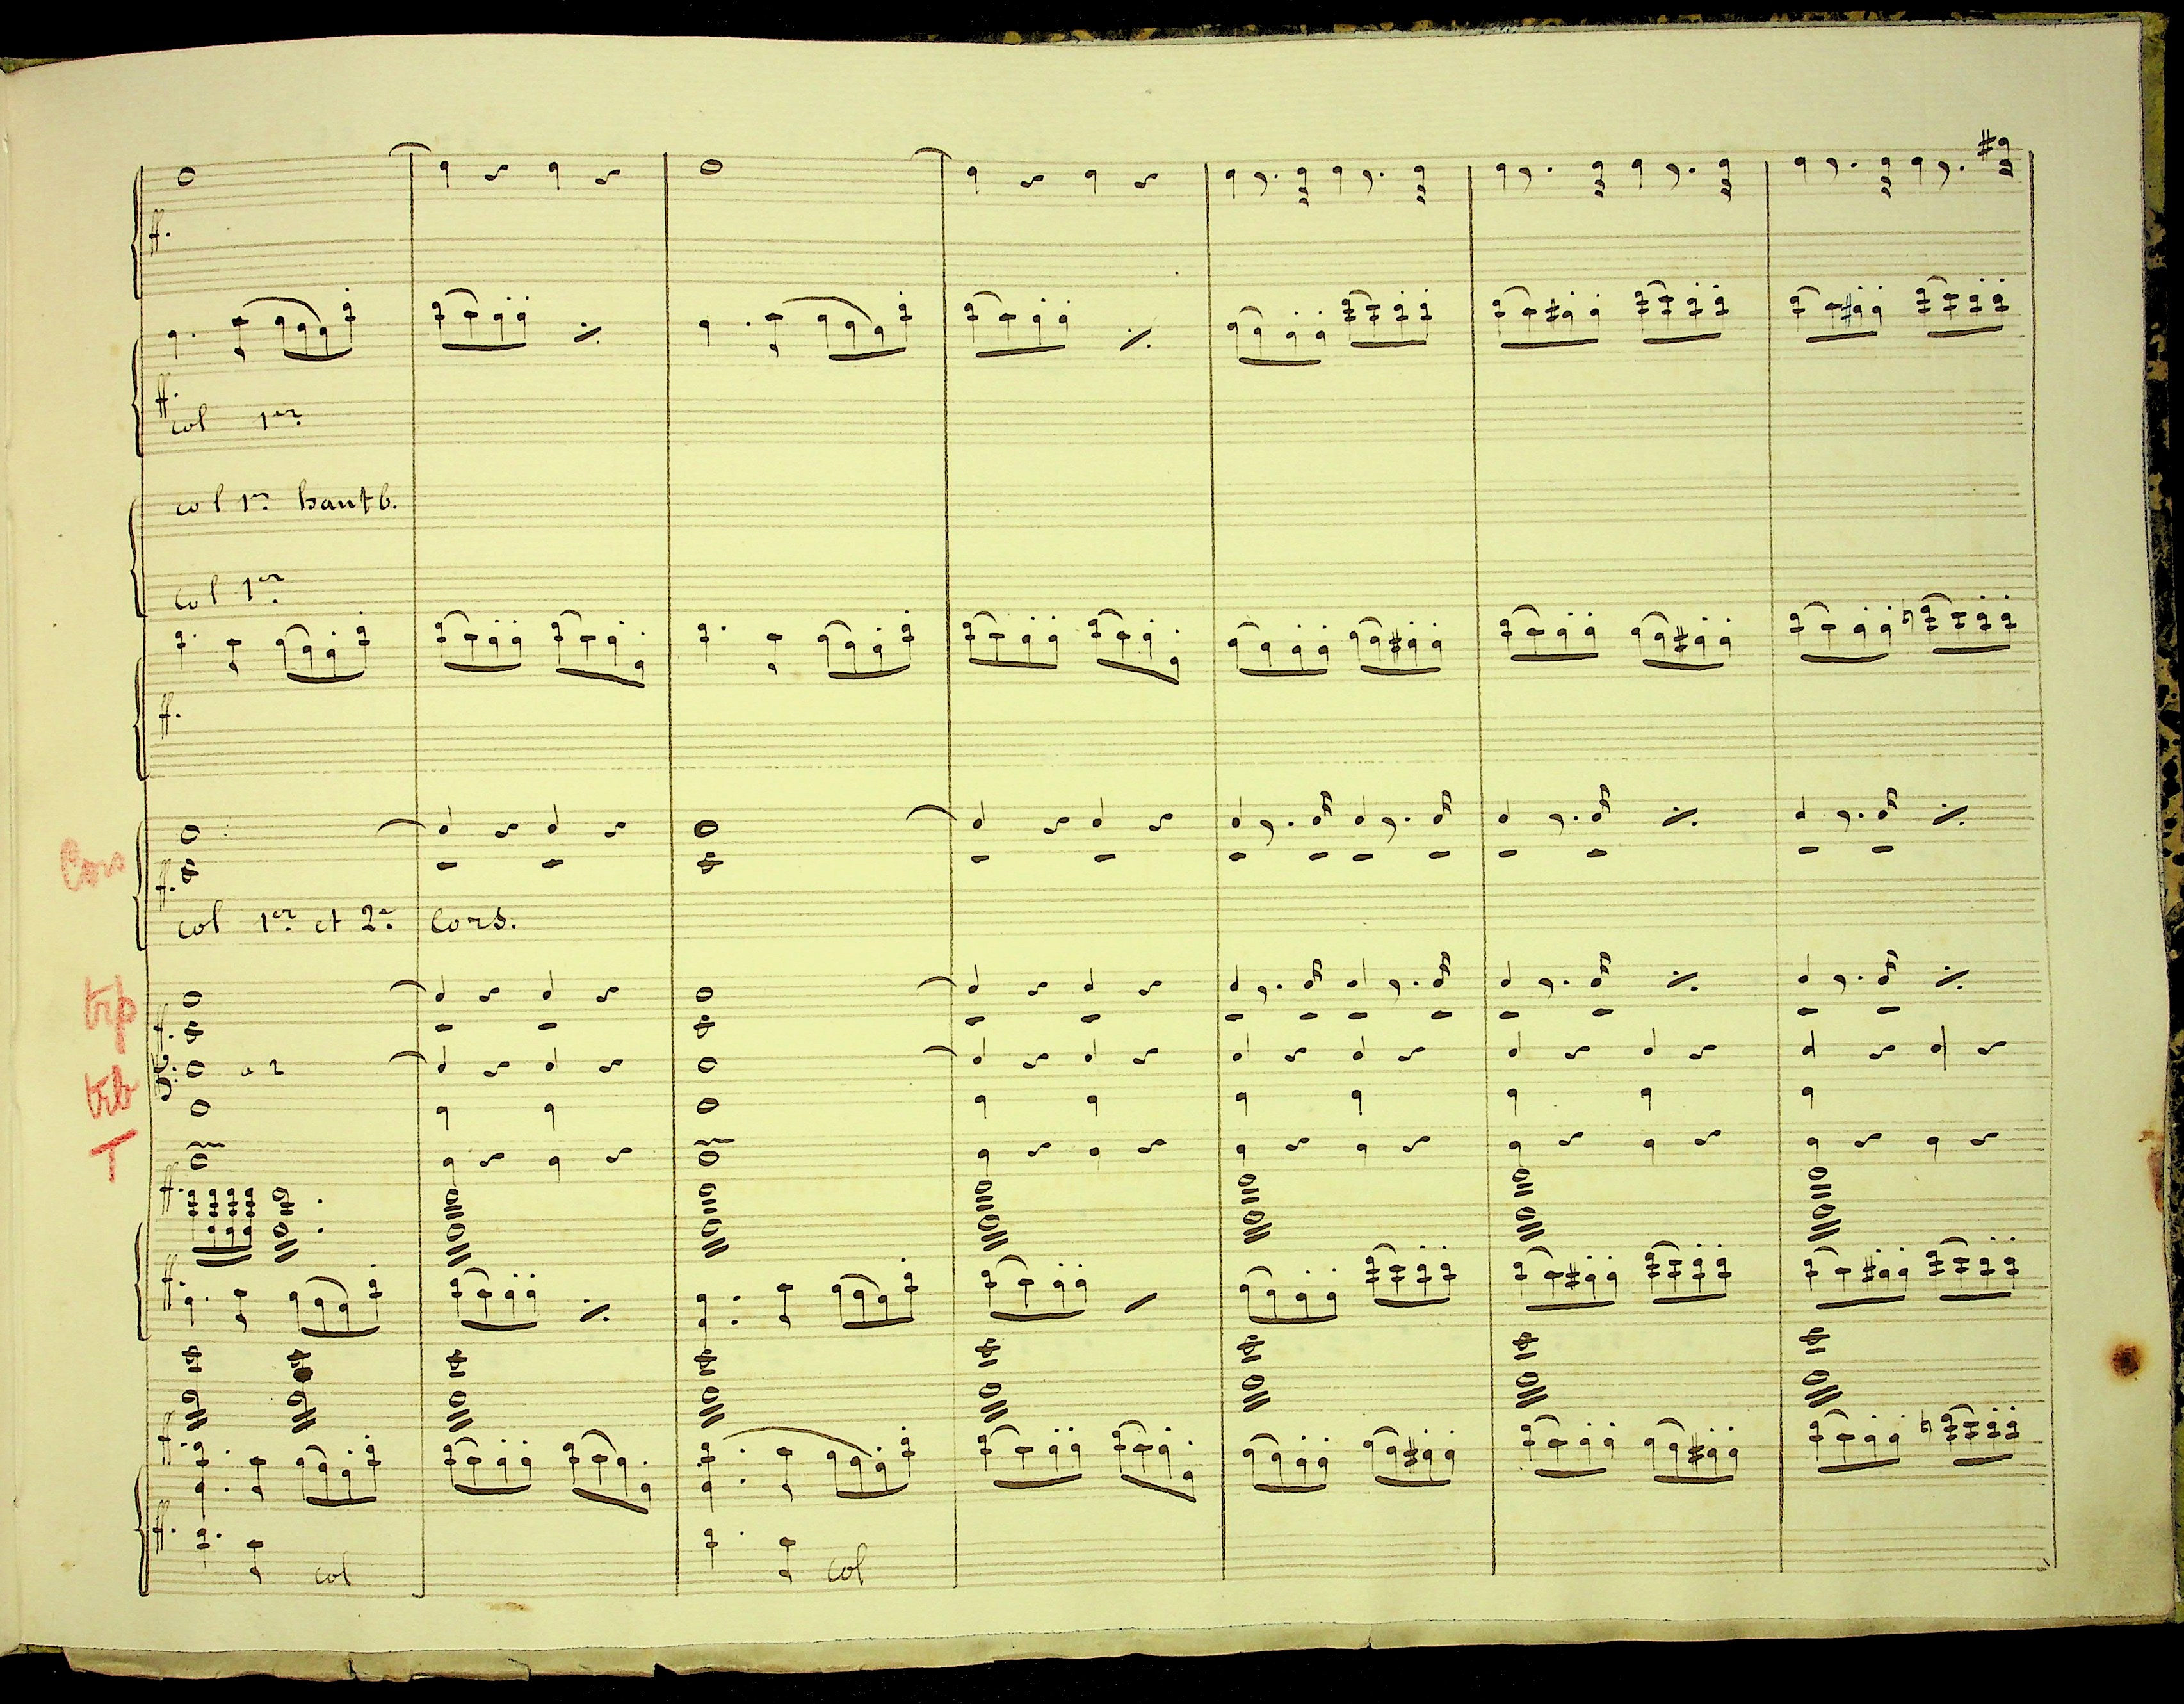 ff.
ff.
col 1er
col 1er hautb.
col 1er
ff.
Cors
ff.
col 1er et 2e Cors.
trp
ff.
ff.
a 2
trb
T
ff.
ff.
ff.
ff.
col col